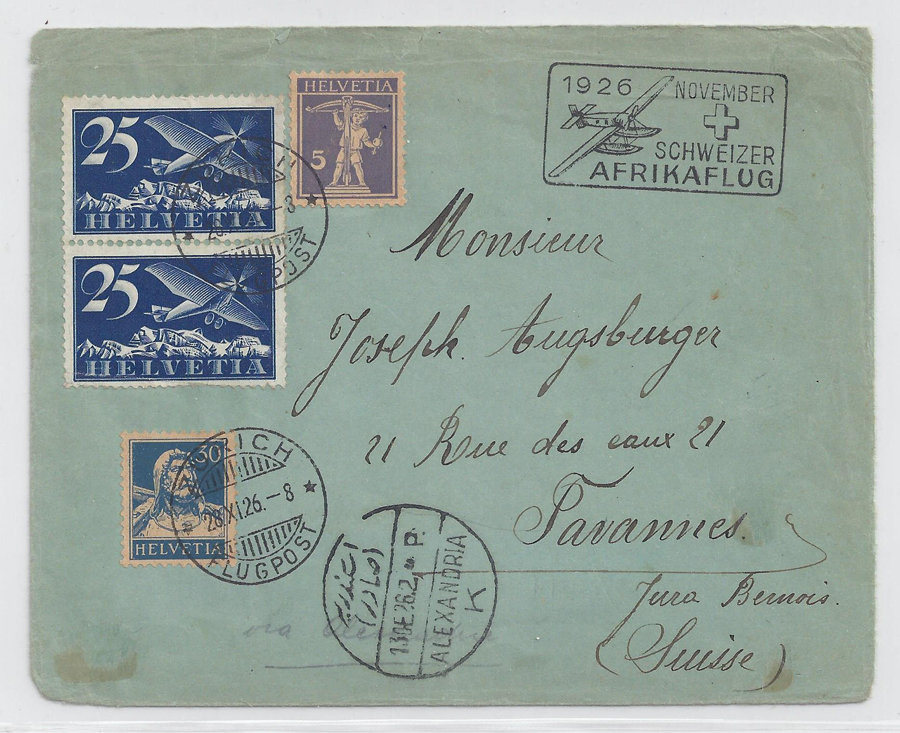 25
HELVETIA
25
HELVETIA
HELVETIA
5
1926
NOVEMBER
SCHWEIZER
AFRIKAFLUG
Monsieur
Joseph Augsburger
21 Rue des eaux 21
Tavannes.
Jura Bernois.
(Suisse)
30
HELVETIA
ZÜRICH
28.XI.26.-8
FLUGPOST
ALEXANDRIA
K
P.
via